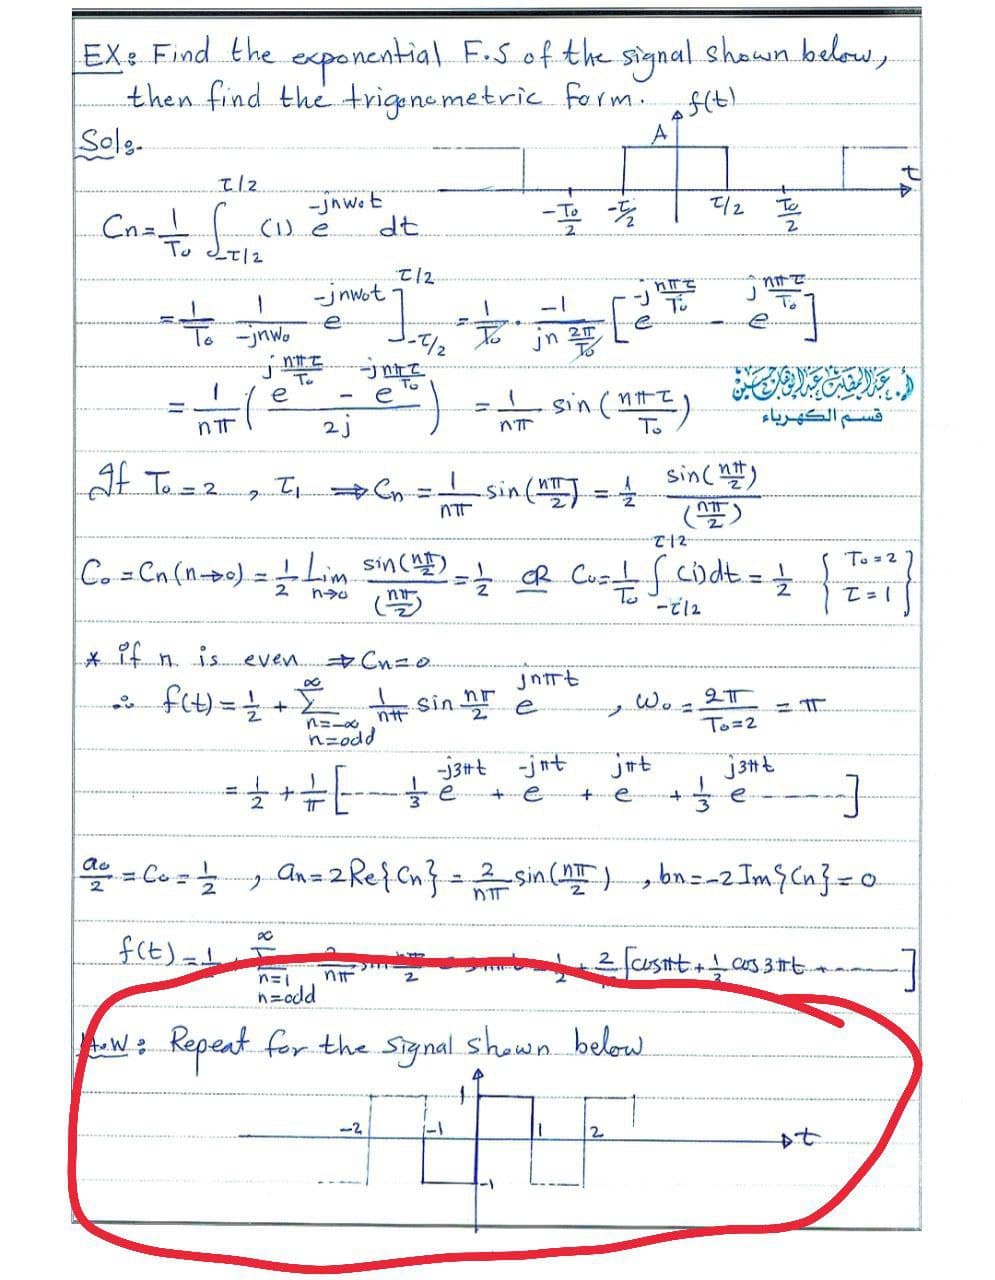 EX: Find the exponential F.S of the signal shown below,
then find the trigonometric form.
f(t)
A
t
-T₀/2 -τ/2 τ/2 T₀/2
Sol:-
Cn = 1/T₀ ∫_{-τ/2}^{τ/2} (1) e^{-jnw₀t} dt
= 1/T₀ 1/-jnw₀ e^{-jnw₀t} ]_{-τ/2}^{τ/2} = 1/T₀ · -1/(jn 2π/T₀) [ e^{-j nπτ/T₀} - e^{j nπτ/T₀} ]
= 1/nπ ( (e^{j nπτ/T₀} - e^{-j nπτ/T₀}) / 2j ) = 1/nπ sin ( nπτ/T₀ )
قسم الكهرباء
If T₀ = 2 , τ₁ ⇒ Cn = 1/nπ sin ( nπ/2 ) = 1/2 sin(nπ/2) / (nπ/2)
C₀ = Cn (n→0) = 1/2 Lim_{n→0} sin(nπ/2) / (nπ/2) = 1/2 OR C₀ = 1/T₀ ∫_{-τ/2}^{τ/2} (1) dt = 1/2 { T₀ = 2 τ = 1 }
* if n is even ⇒ Cn = 0
∴ f(t) = 1/2 + Σ_{n=-∞ n=odd}^{∞} 1/nπ sin nπ/2 e^{jnπt} , w₀ = 2π/T₀=2 = π
= 1/2 + 1/π [ ---- 1/3 e^{-j3πt} + e^{-jπt} + e^{jπt} + 1/3 e^{j3πt} ----- ]
a₀/2 = C₀ = 1/2 , an = 2Re{Cn} = 2/nπ sin(nπ/2) , bn = -2 Im{Cn} = 0
f(t) = 1/2 + Σ_{n=1 n=odd}^{∞} 2/nπ sin nπ/2 nπt = 1/2 + 2/ [cosπt + 1/3 cos3πt + ------ ]
H.W: Repeat for the signal shown below
1
-2 -1 1 2 t
-1